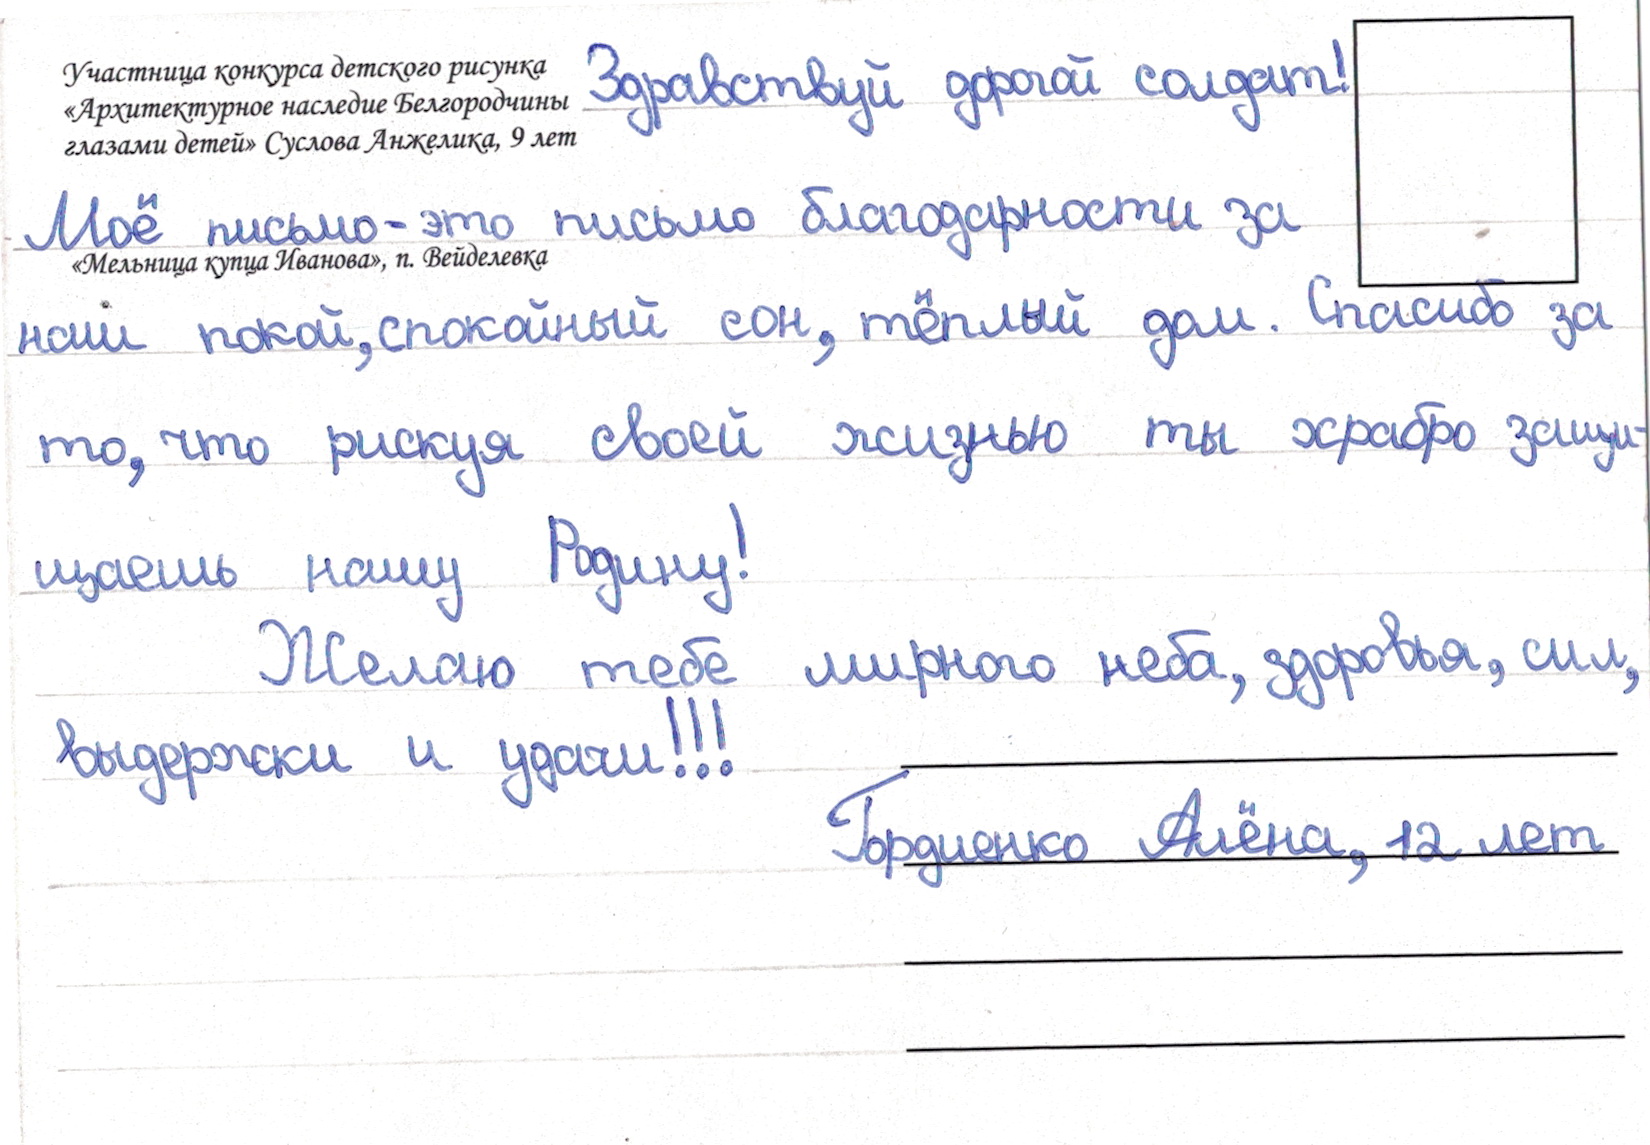 Участница конкурса детского рисунка
«Архитектурное наследие Белгородчины
глазами детей» Суслова Анжелика, 9 лет
Здравствуй дорогой солдат!
Моё письмо - это письмо благодарности за
«Мельница купца Иванова», п. Вейделевка
наш покой, спокойный сон, тёплый дом. Спасибо за
то, что рискуя своей жизнью ты храбро защи-
щаешь нашу Родину!
Желаю тебе мирного неба, здоровья, сил,
выдержки и удачи!!!
Гордиенко Алёна, 12 лет